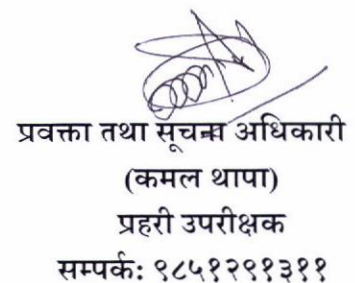 प्रवक्ता तथा सूचना अधिकारी
(कमल थापा)
प्रहरी उपरीक्षक
सम्पर्क: ९८५१२९१३११